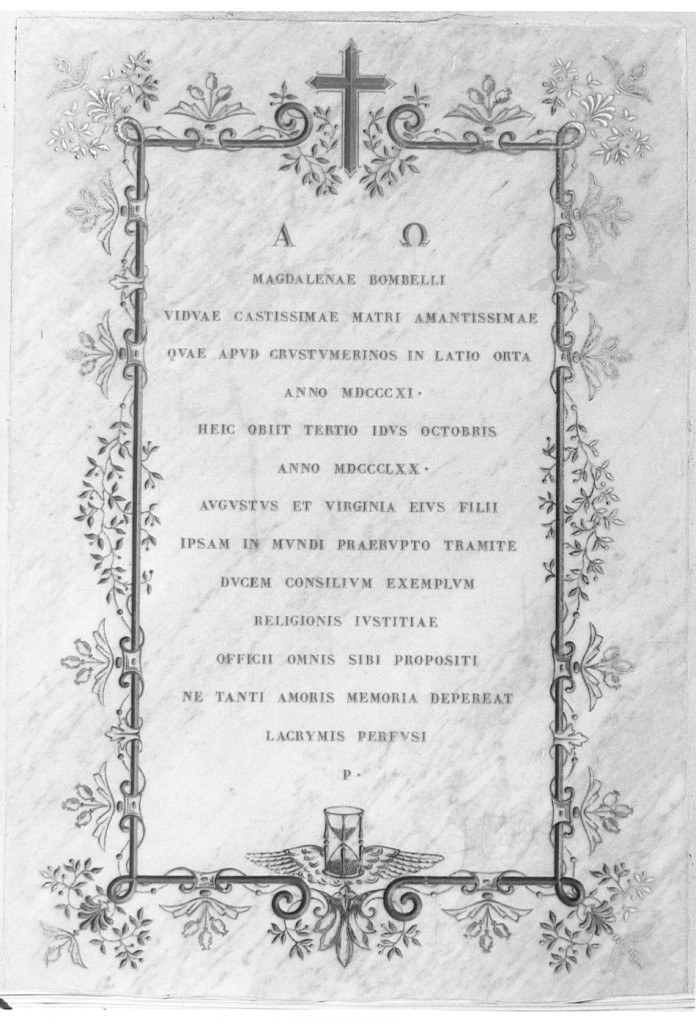 Α Ω
MAGDALENAE BOMBELLI
VIDVAE CASTISSIMAE MATRI AMANTISSIMAE
QVAE APVD CRVSTVMERINOS IN LATIO ORTA
ANNO MDCCCXI·
HEIC OBIIT TERTIO IDVS OCTOBRIS
ANNO MDCCCLXX·
AVGVSTVS ET VIRGINIA EIVS FILII
IPSAM IN MVNDI PRAERVPTO TRAMITE
DVCEM CONSILIVM EXEMPLVM
RELIGIONIS IVSTITIAE
OFFICII OMNIS SIBI PROPOSITI
NE TANTI AMORIS MEMORIA DEPEREAT
LACRYMIS PERFVSI
P·